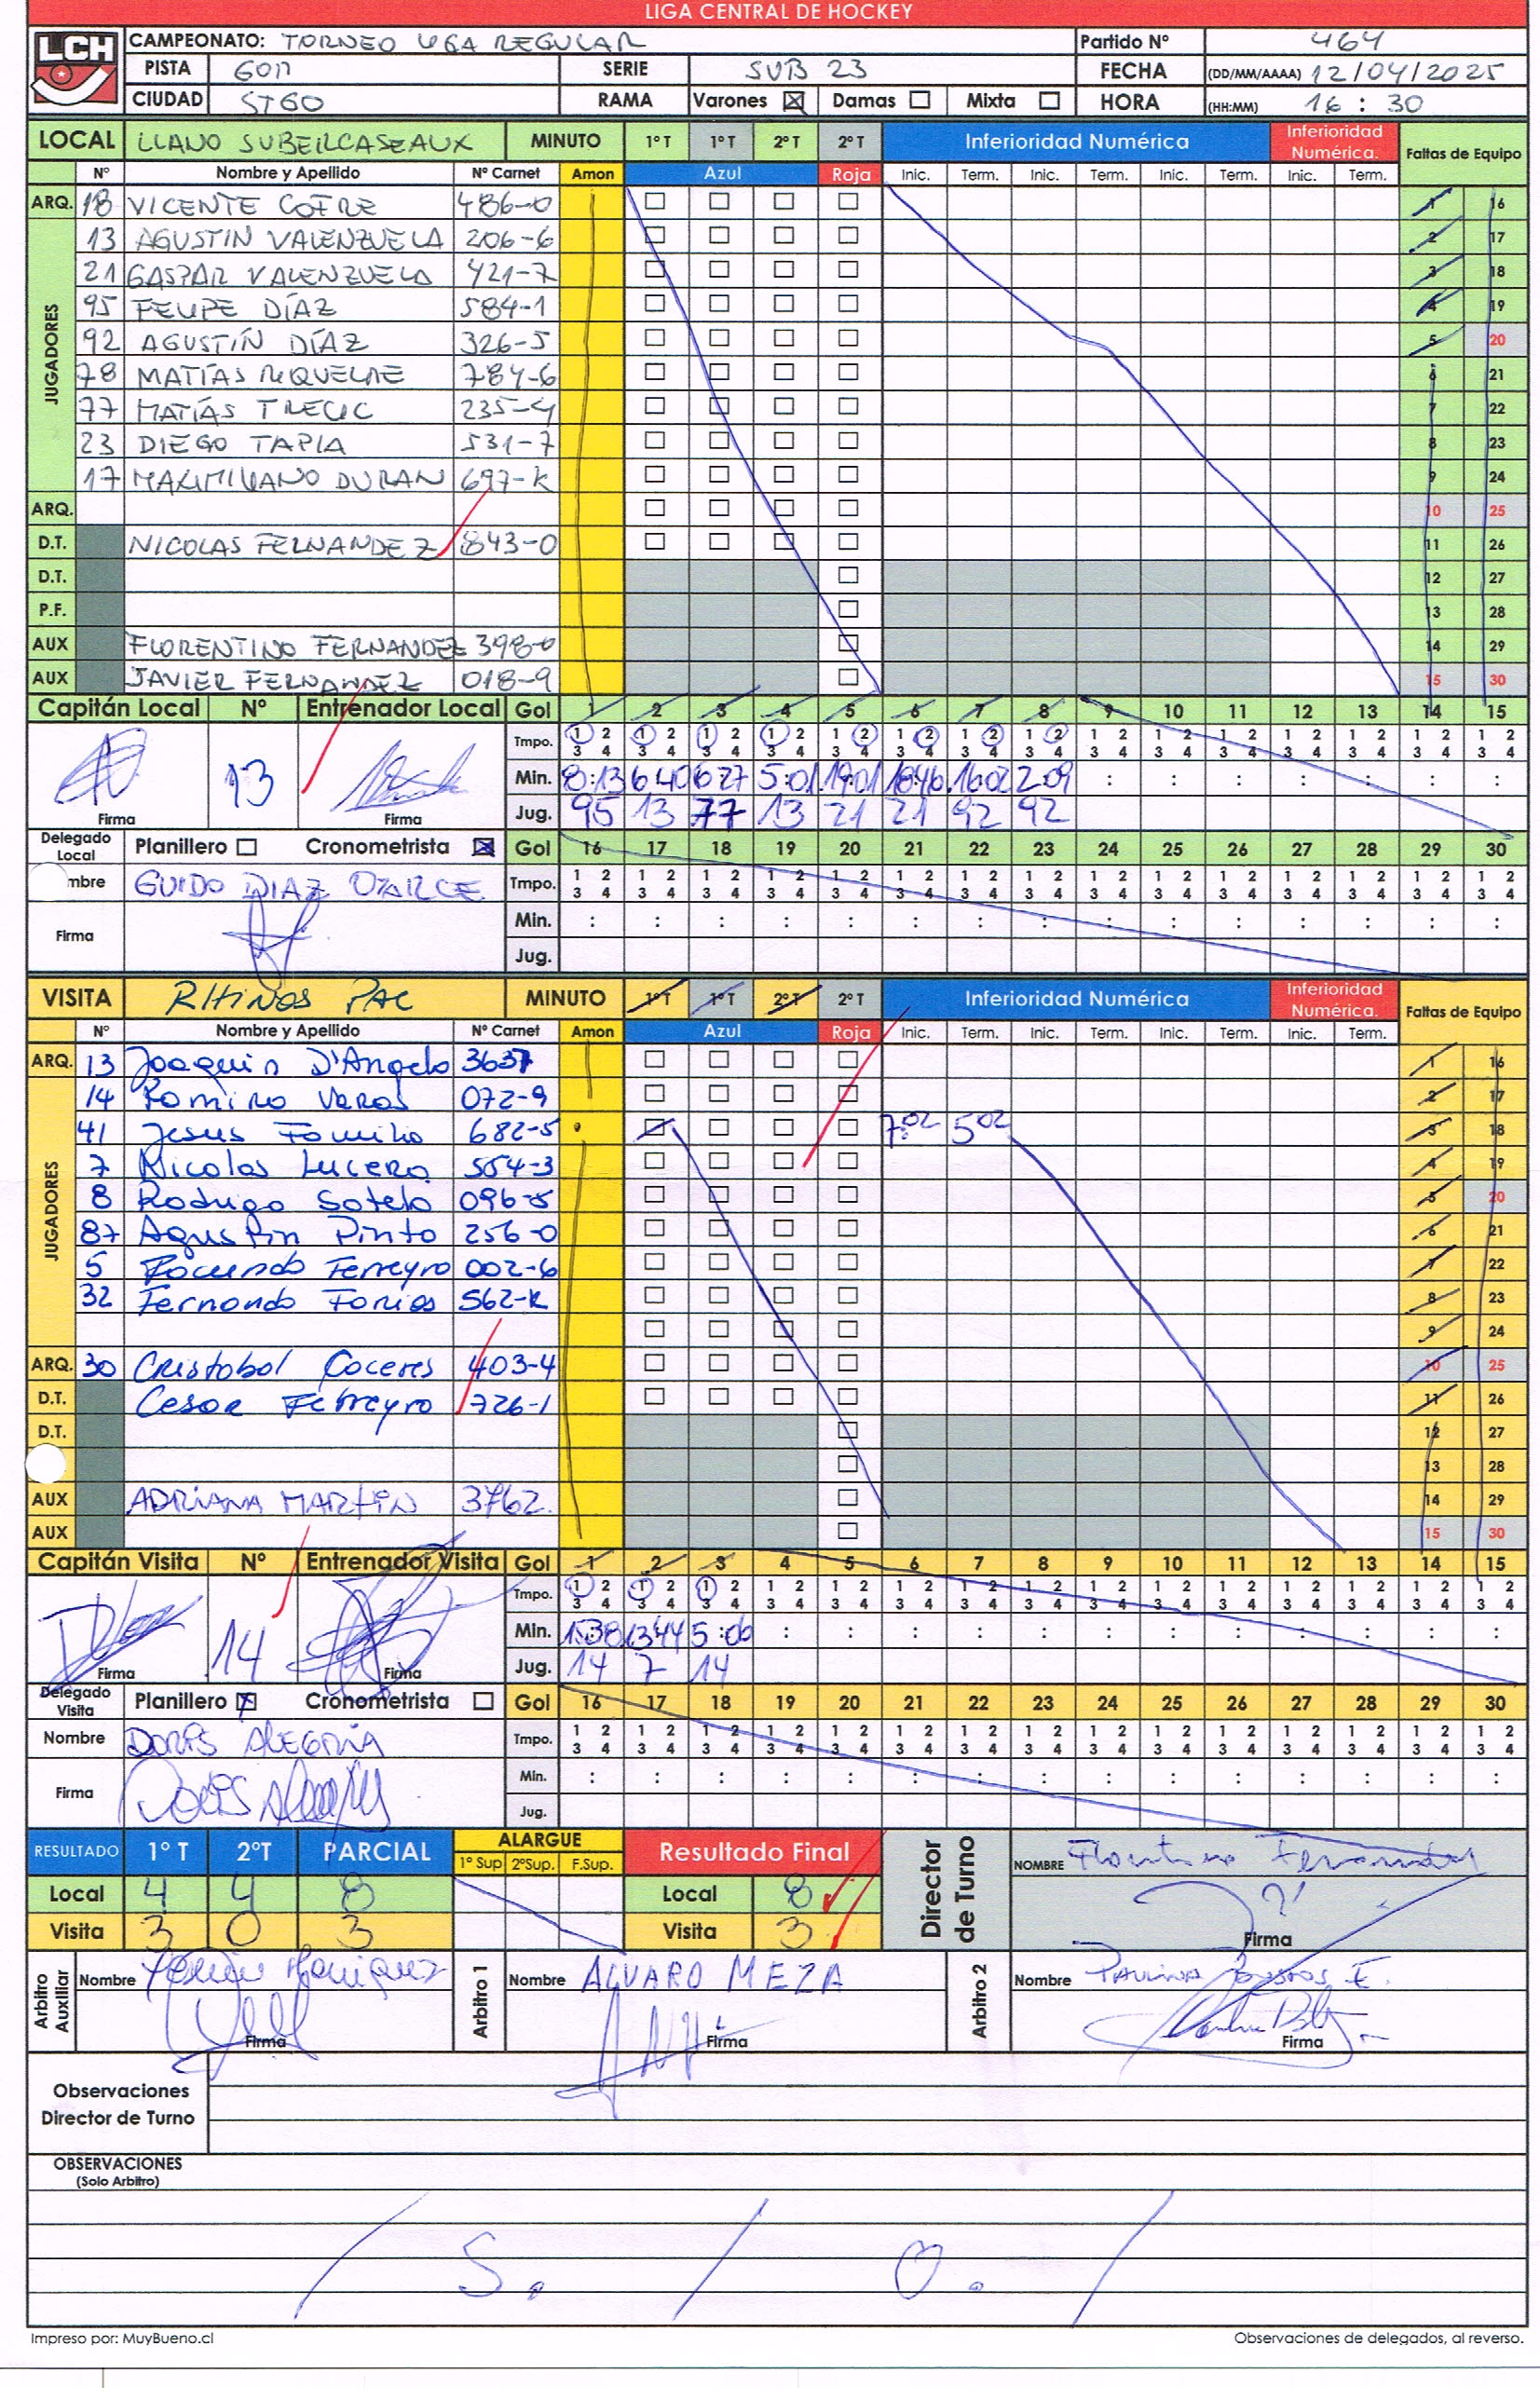 LIGA CENTRAL DE HOCKEY
LCH
CAMPEONATO: TORNEO LIGA REGULAR Partido Nº 464
PISTA GON SERIE SUB 23 FECHA (DD/MM/AAAA) 12/04/2025
CIUDAD STGO RAMA Varones ☒ Damas ☐ Mixta ☐ HORA (HH:MM) 16 : 30
LOCAL LLANO SUBERCASEAUX MINUTO 1º T 1º T 2º T 2º T Inferioridad Numérica Inferioridad Numérica. Faltas de Equipo
Nº Nombre y Apellido Nº Carnet Amon Azul Roja Inic. Term. Inic. Term. Inic. Term. Inic. Term.
ARQ. 18 VICENTE COFRE 486-0 ☐ ☐ ☐ ☐ 1 16
JUGADORES
13 AGUSTIN VALENZUELA 206-6 ☐ ☐ ☐ ☐ 2 17
21 GASPAR VALENZUELA 421-7 ☐ ☐ ☐ ☐ 3 18
95 FELIPE DÍAZ 584-1 ☐ ☐ ☐ ☐ 4 19
92 AGUSTÍN DÍAZ 326-5 ☐ ☐ ☐ ☐ 5 20
78 MATÍAS RIQUELME 784-6 ☐ ☐ ☐ ☐ 6 21
77 MATÍAS TRECIC 235-4 ☐ ☐ ☐ ☐ 7 22
23 DIEGO TAPIA 531-7 ☐ ☐ ☐ ☐ 8 23
17 MAXIMILIANO DURAN 697-K ☐ ☐ ☐ ☐ 9 24
ARQ. ☐ ☐ ☐ ☐ 10 25
D.T. NICOLAS FERNANDEZ 843-0 ☐ ☐ ☐ ☐ 11 26
D.T. ☐ 12 27
P.F. ☐ 13 28
AUX FLORENTINO FERNANDEZ 398-0 ☐ 14 29
AUX JAVIER FERNANDEZ 018-9 ☐ 15 30
Capitán Local Nº Entrenador Local Gol 1 2 3 4 5 6 7 8 9 10 11 12 13 14 15
Tmpo. 1 2 1 2 1 2 1 2 1 2 1 2 1 2 1 2 1 2 1 2 1 2 1 2 1 2 1 2 1 2
3 4 3 4 3 4 3 4 3 4 3 4 3 4 3 4 3 4 3 4 3 4 3 4 3 4 3 4 3 4
13 Min. 8:13 6:40 6:27 5:01 19:01 18:46 16:02 2:09 : : : : : : :
Firma Firma Jug. 95 13 77 13 21 21 92 92
Delegado Local Planillero ☐ Cronometrista ☒ Gol 16 17 18 19 20 21 22 23 24 25 26 27 28 29 30
mbre GUIDO DIAZ OYARCE Tmpo. 1 2 1 2 1 2 1 2 1 2 1 2 1 2 1 2 1 2 1 2 1 2 1 2 1 2 1 2 1 2
3 4 3 4 3 4 3 4 3 4 3 4 3 4 3 4 3 4 3 4 3 4 3 4 3 4 3 4 3 4
Firma Min. : : : : : : : : : : : : : : :
Jug.
VISITA RHINOS PAC MINUTO 1º T 1º T 2º T 2º T Inferioridad Numérica Inferioridad Numérica. Faltas de Equipo
Nº Nombre y Apellido Nº Carnet Amon Azul Roja Inic. Term. Inic. Term. Inic. Term. Inic. Term.
ARQ. 13 Joaquin D'Angelo 3637 ☐ ☐ ☐ ☐ 1 16
JUGADORES
14 Romino Varas 072-9 ☐ ☐ ☐ ☐ 2 17
41 Jesus Familio 682-5 ☐ ☐ ☐ ☐ 7:02 5:02 3 18
7 Nicolas Lucero 554-3 ☐ ☐ ☐ ☐ 4 19
8 Rodrigo Sotelo 096-5 ☐ ☐ ☐ ☐ 5 20
87 Agustin Pinto 256-0 ☐ ☐ ☐ ☐ 6 21
5 Facundo Ferreyro 002-6 ☐ ☐ ☐ ☐ 7 22
32 Fernando Farias 562-K ☐ ☐ ☐ ☐ 8 23
☐ ☐ ☐ ☐ 9 24
ARQ. 30 Cristobal Caceres 403-4 ☐ ☐ ☐ ☐ 10 25
D.T. Cesar Ferreyro 726-1 ☐ ☐ ☐ ☐ 11 26
D.T. ☐ 12 27
☐ 13 28
AUX ADRIANA MARTIN 3762. ☐ 14 29
AUX ☐ 15 30
Capitán Visita Nº Entrenador Visita Gol 1 2 3 4 5 6 7 8 9 10 11 12 13 14 15
Tmpo. 1 2 1 2 1 2 1 2 1 2 1 2 1 2 1 2 1 2 1 2 1 2 1 2 1 2 1 2 1 2
3 4 3 4 3 4 3 4 3 4 3 4 3 4 3 4 3 4 3 4 3 4 3 4 3 4 3 4 3 4
14 Min. 15:38 13:44 5:06 : : : : : : : : : : : :
Firma Firma Jug. 14 7 14
Delegado Visita Planillero ☒ Cronometrista ☐ Gol 16 17 18 19 20 21 22 23 24 25 26 27 28 29 30
Nombre DORIS ALEGRIA Tmpo. 1 2 1 2 1 2 1 2 1 2 1 2 1 2 1 2 1 2 1 2 1 2 1 2 1 2 1 2 1 2
3 4 3 4 3 4 3 4 3 4 3 4 3 4 3 4 3 4 3 4 3 4 3 4 3 4 3 4 3 4
Firma Min. : : : : : : : : : : : : : : :
Jug.
RESULTADO 1º T 2ºT PARCIAL ALARGUE 1º Sup 2ºSup. F.Sup. Resultado Final Director de Turno NOMBRE Florentino Fernandez
Local 4 4 8 Local 8
Visita 3 0 3 Visita 3 Firma
Arbitro Auxiliar Nombre Arbitro 1 Nombre ALVARO MEZA Arbitro 2 Nombre PAULINA BUSTOS E.
Firma Firma Firma
Observaciones
Director de Turno
OBSERVACIONES
(Solo Arbitro)
/ S. / O. /
Impreso por: MuyBueno.cl Observaciones de delegados, al reverso.